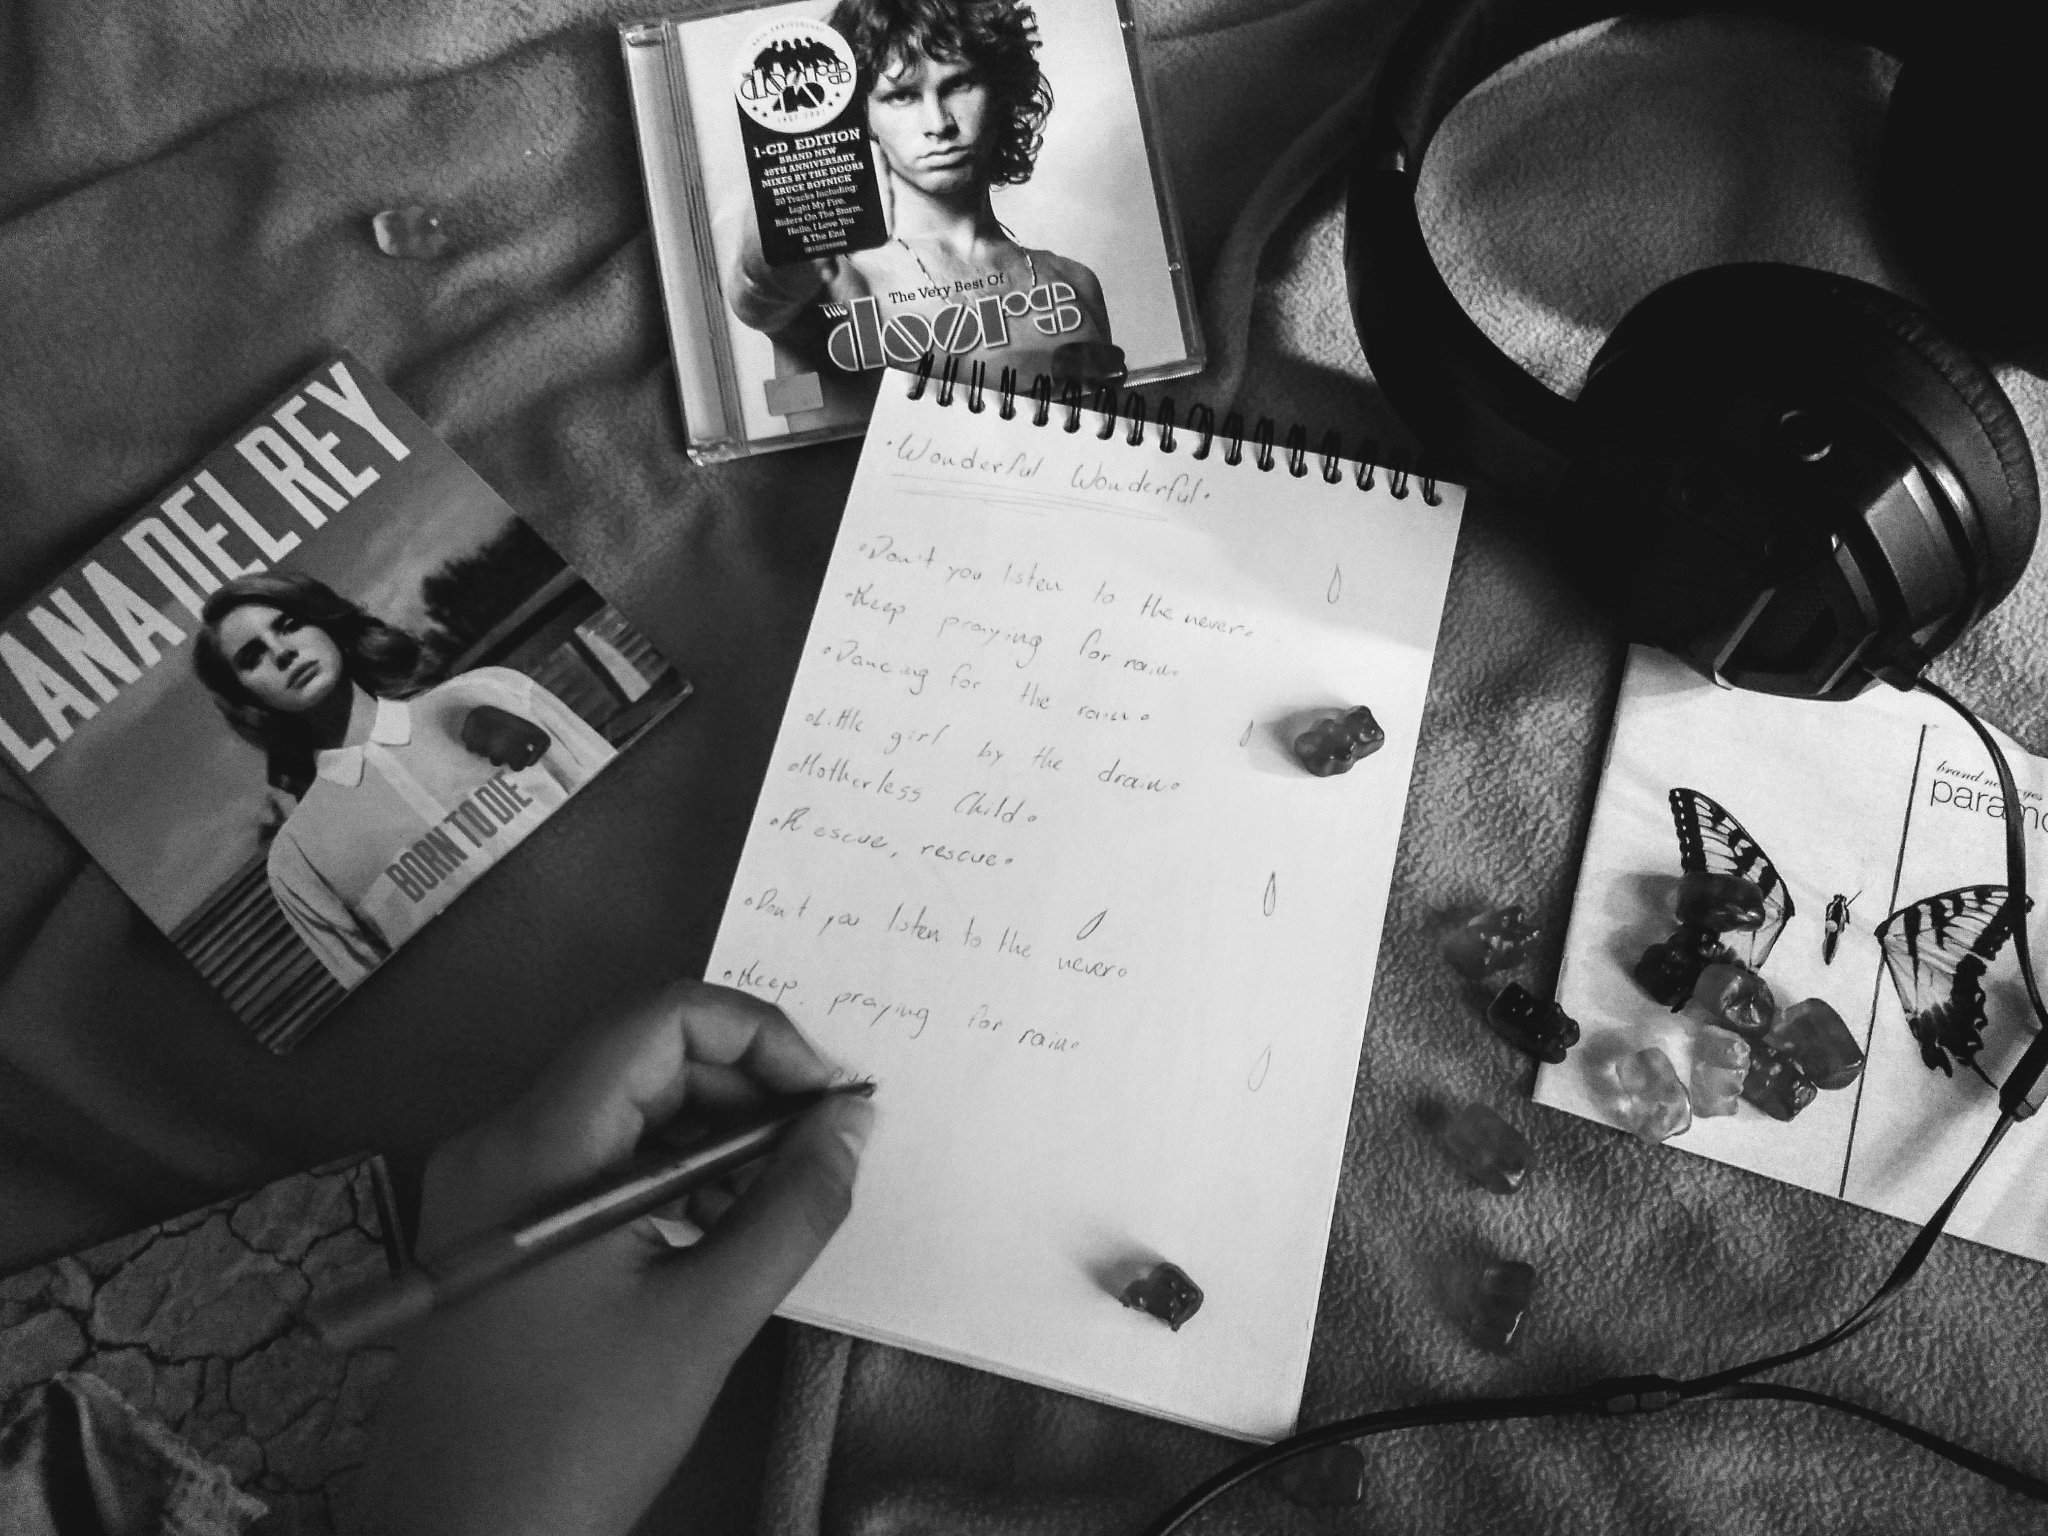 the doors
40
1-CD EDITION
BRAND NEW
40TH ANNIVERSARY
MIXES BY THE DOORS
BRUCE BOTNICK
20 Tracks Including:
Light My Fire,
Riders On The Storm,
Hello, I Love You
& The End
The Very Best Of
THE
doors
LANA DEL REY
BORN TO DIE
• Wonderful Wonderful.
• Don't you listen to the never.
• Keep praying for rain.
• Dancing for the rain.
• Little girl by the drain.
• Motherless Child.
• Rescue, rescue.
• Don't you listen to the never.
• Keep praying for rain.
brand new eyes
paramo